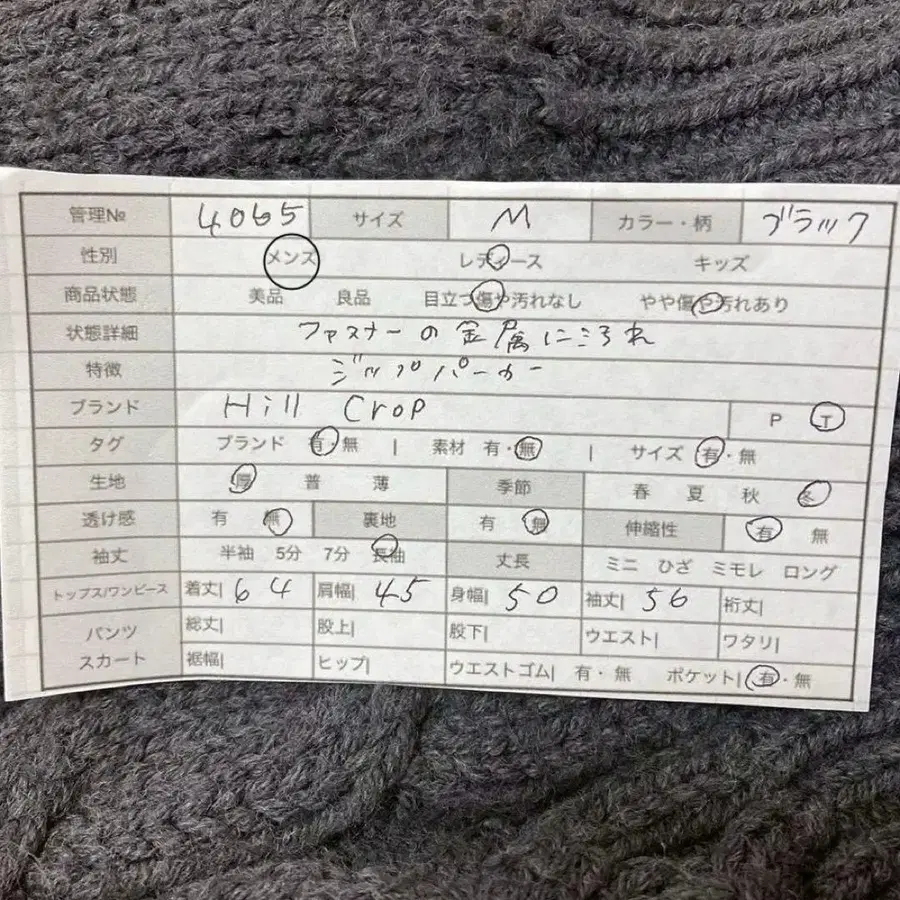 管理№ 4065 サイズ M カラー・柄 ブラック
性別 メンズ レディース キッズ
商品状態 美品 良品 目立つ傷や汚れなし やや傷や汚れあり
状態詳細 ファスナーの金属によごれ
特徴 ジップパーカー
ブランド Hill Crop P T
タグ ブランド 有・無 | 素材 有・無 | サイズ 有・無
生地 厚 普 薄 季節 春 夏 秋 冬
透け感 有 無 裏地 有 無 伸縮性 有 無
袖丈 半袖 5分 7分 長袖 丈長 ミニ ひざ ミモレ ロング
トップス/ワンピース 着丈| 64 肩幅| 45 身幅| 50 袖丈| 56 裄丈|
パンツ スカート 総丈| 股上| 股下| ウエスト| ワタリ|
裾幅| ヒップ| ウエストゴム| 有・無 ポケット| 有・無